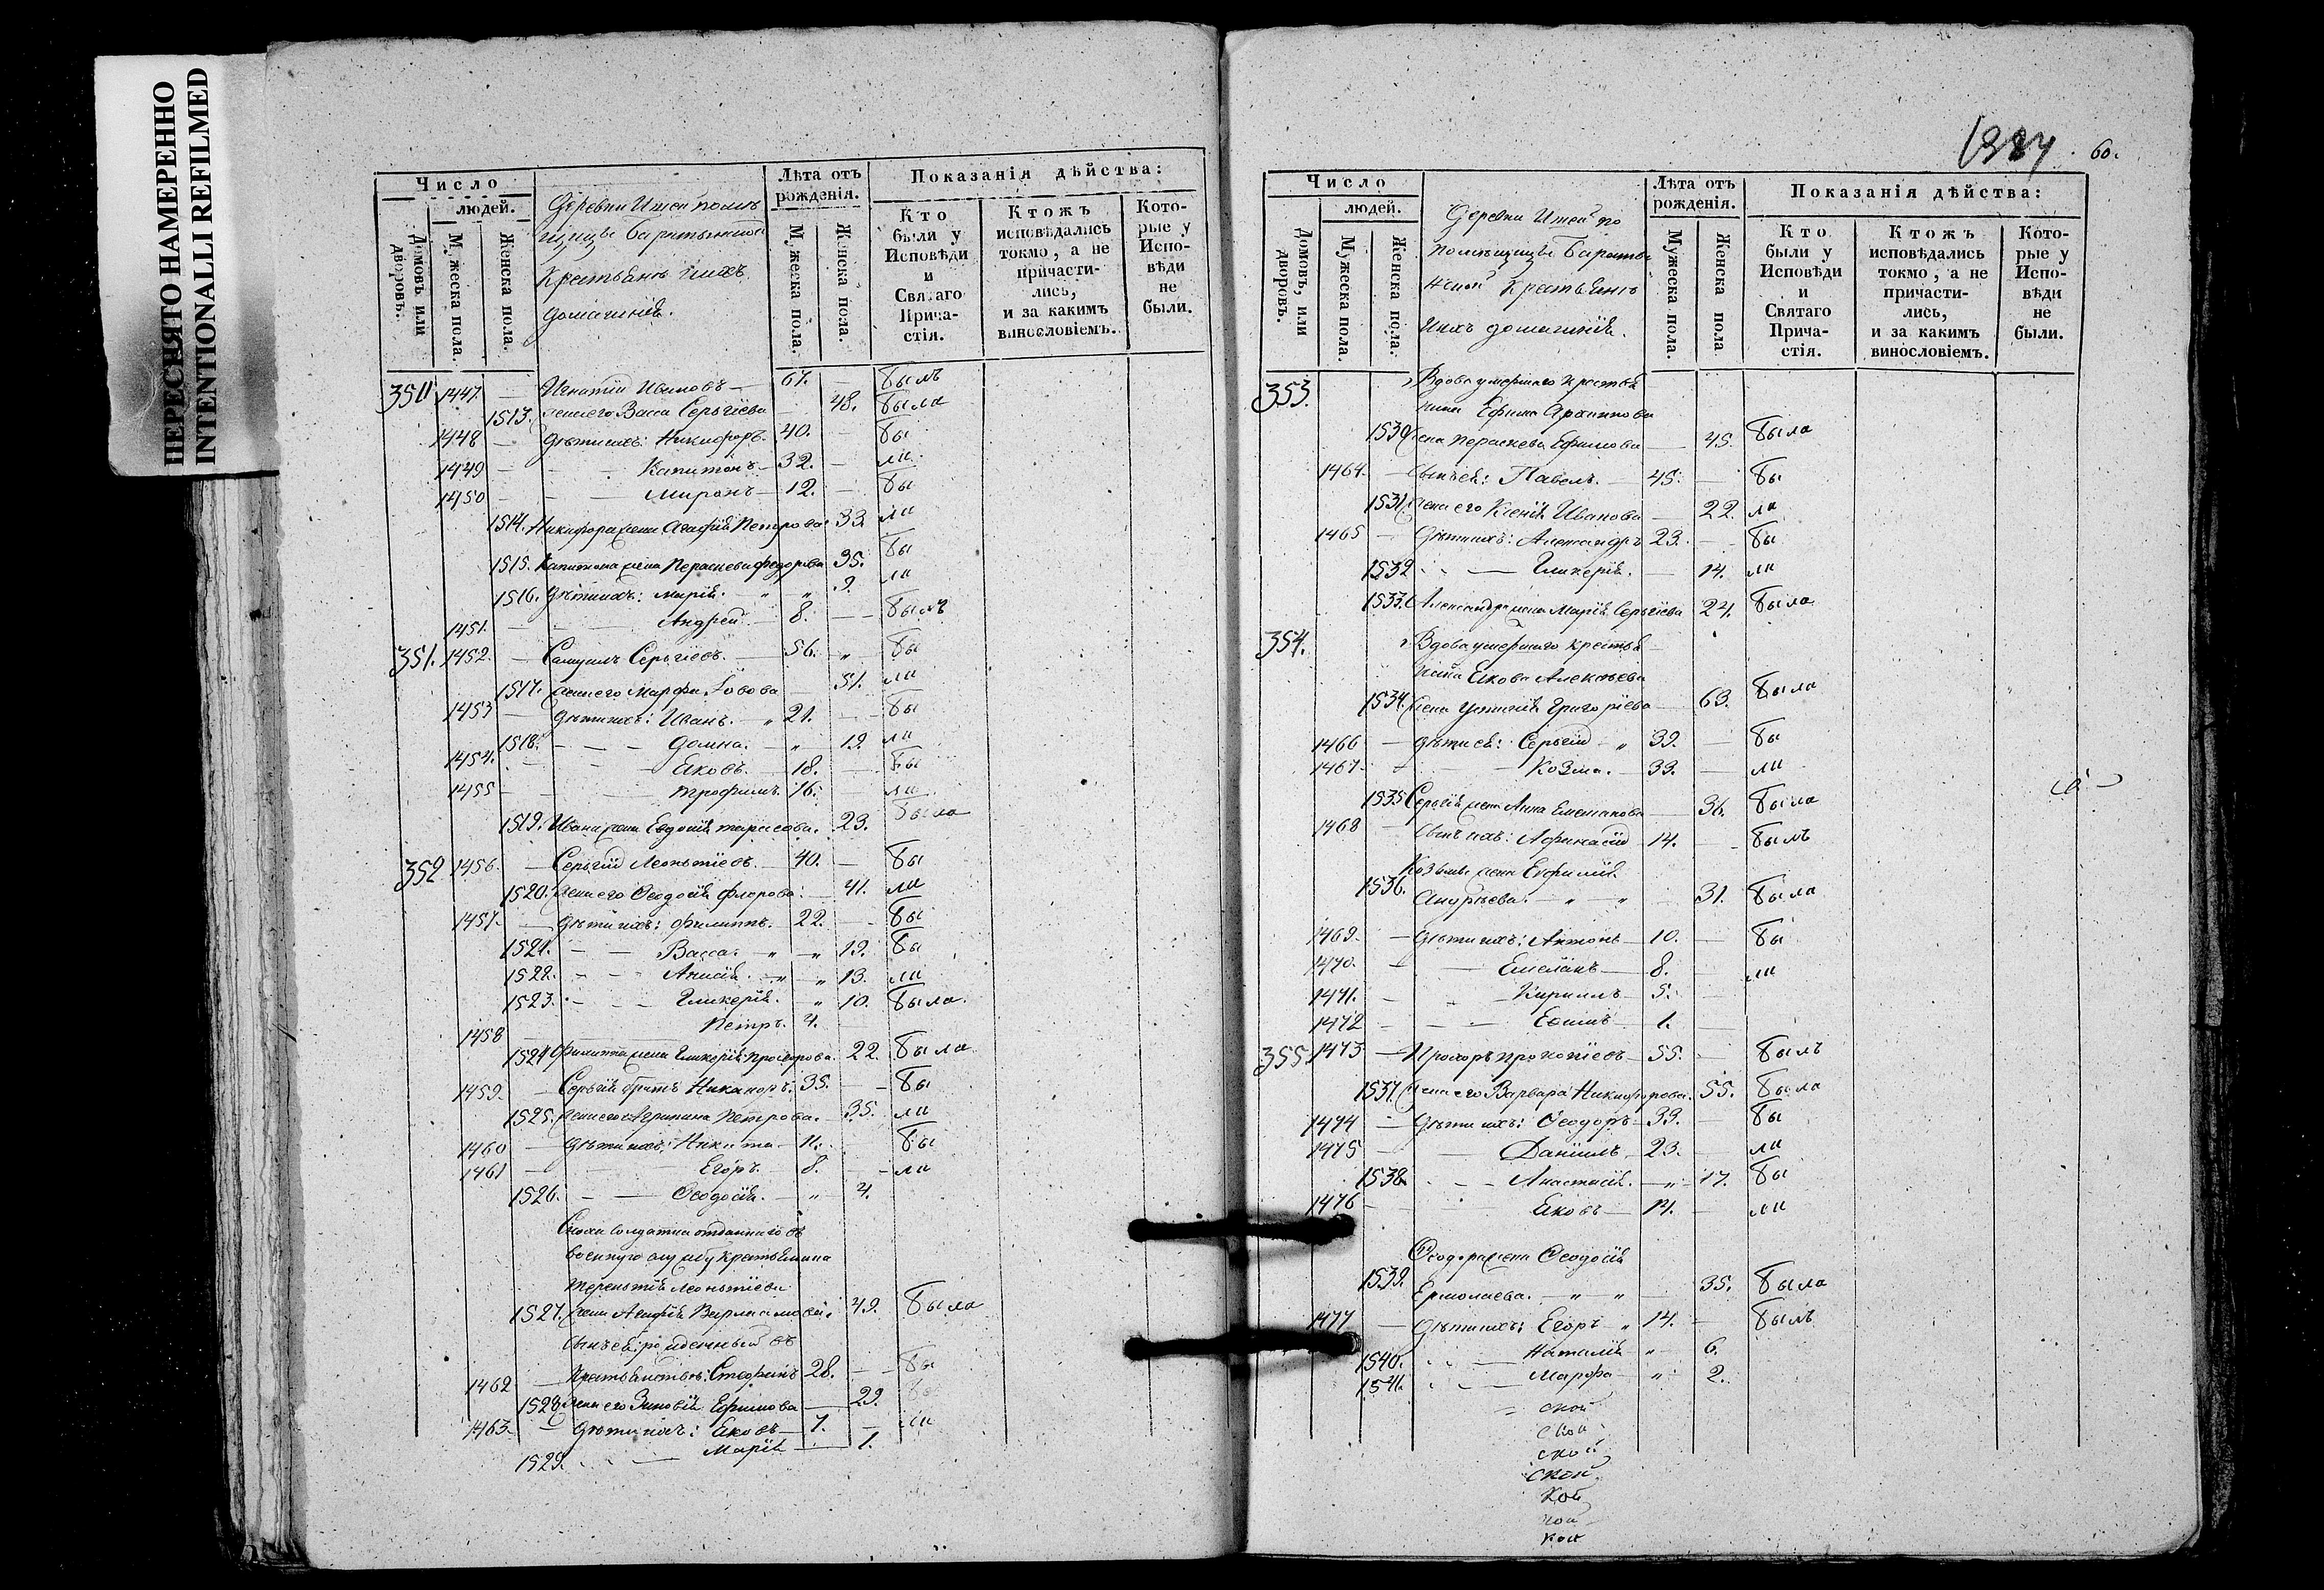 ПЕРЕСНЯТО НАМЕРЕННО
INTENTIONALLI REFILMED
Число
людей.
Домовъ или дворовъ.
Мужеска пола.
Женска пола.
Деревни
Крестьянъ ихъ
домашнія.
Лѣта отъ рожденія.
Мужеска пола.
Женска пола.
Показанія дѣйства:
Кто были у Исповѣди и Святаго Прича-стія.
Ктожъ исповѣдались токмо, а не причасти-лись, и за какимъ винословіемъ.
Кото-рые у Испо-вѣди не были.
350 1447. — Игнатій Ивановъ — 67. — былъ
1513. жена его Васса Сергѣева — 48. была
1448 — дѣти ихъ: Никифоръ. 40. — бы
1449 — Капитонъ — 32. — ли
1450 — Миронъ — 12. — бы
1514. Никифора жена Агафія Петрова 33. ли
1515. Капитона жена Параскева Федорова 35. бы
1516. дѣти ихъ: Марія. 9. ли
1451. — Андрей — 8. — былъ
351. 1452. — Самуилъ Сергіевъ. — 56. бы
1517. жена его Марфа 51. ли
1453 — дѣти ихъ: Иванъ. 21. — бы
1518. — Домна. 19. ли
1454. — Яковъ. 18. — бы
1455 — Трофимъ. 16. — ли
1519. Ивана жена Евдокія Тарасова. 23. была
352 1456. — Сергій Леонтіевъ. — 40. — бы
1520. жена его Ѳеодосія Флорова. 41. ли
1457. — дѣти ихъ: Филиппъ. 22. — бы
1521. — Васса. 19. бы
1522. — Анисія. 13. ли
1523. — Гликерія. 10. была.
1458 Петръ. 4.
1524 Филиппа жена Гликерія Прохорова. 22. была
1459. — Сергія братъ Никаноръ. 35. — бы
1525. жена его Агрипина Петрова. 35. ли
1460 — дѣти ихъ: Никита — 11. бы
1461 — Егоръ. 8. — ли
1526. — Ѳеодосія. 4.
солдатка отданнаго въ
военную службу крестьянина
Терентія Леонтіева
1527. жена Агафія Варламова. 49. была
Сынъ ея рожденный въ
1462 крестьянствѣ: Стефанъ 28. — бы
1528. жена его Зиновія Ефимова — 29.
1463. — дѣти ихъ: Яковъ — 7. — ли
1529. — Марія — 1.
1334 60.
Число
людей.
Домовъ, или дворовъ.
Мужеска пола.
Женска пола.
Деревни
помѣщицы
Крестьянъ
ихъ домашнія.
Лѣта отъ рожденія.
Мужеска пола.
Женска пола
Показанія дѣйства:
Кто были у Исповѣди и Святаго Прича-стія.
Ктожъ исповѣдались токмо, а не причасти-лись, и за какимъ винословіемъ.
Кото-рые у Испо-вѣди не были.
353. Вдова умершаго крестья
нина Ефима Архипова
1530 жена Параскева Ефимова — 45. была
1464. — Сынъ ея: Павелъ. — 45. — бы
1531. жена его Ксенія Иванова — 22. ли
1465 — дѣти ихъ: Александръ 23. — бы
1532 — Гликерія. — 14. ли
1533. Александра жена Марія Сергіева 24. была
354. Вдова умершаго крестья
нина Якова Алексѣева
1534. жена Устинія Григоріева — 63. была
1466 — дѣти ея: Сергій 39. — бы
1467 — Козма. — 33. — ли
1535 Сергія жена Анна Емельянова — 36. была
1468 — Сынъ ихъ: Афанасій 14. — былъ
Козьмы жена Евфимія
1536. Андрѣева. — 31. была
1469. — дѣти ихъ: Антонъ — 10. — бы
1470. — Емеліанъ — 8. — ли
1471. — Кириллъ — 5. —
1472 — Ефимъ — 1. —
355 1473 — Прохоръ Прокопіевъ — 55. — былъ
1537. жена его Варвара Никифорова. 55. была
1474 — дѣти ихъ: Ѳеодоръ — 33. — бы
1475 — Даніилъ. 23. — ли
1538. — Анастасія. — 17. бы
1476 — Яковъ — 14. — ли
Ѳеодора жена Ѳеодосія
1539. Ермолаева. — 35. была
1477 — дѣти ихъ: Егоръ 14. — былъ
1540. — Наталія 6.
1541. — Марфа 2.
ской
ской
ской
ской
кой
кой
кой